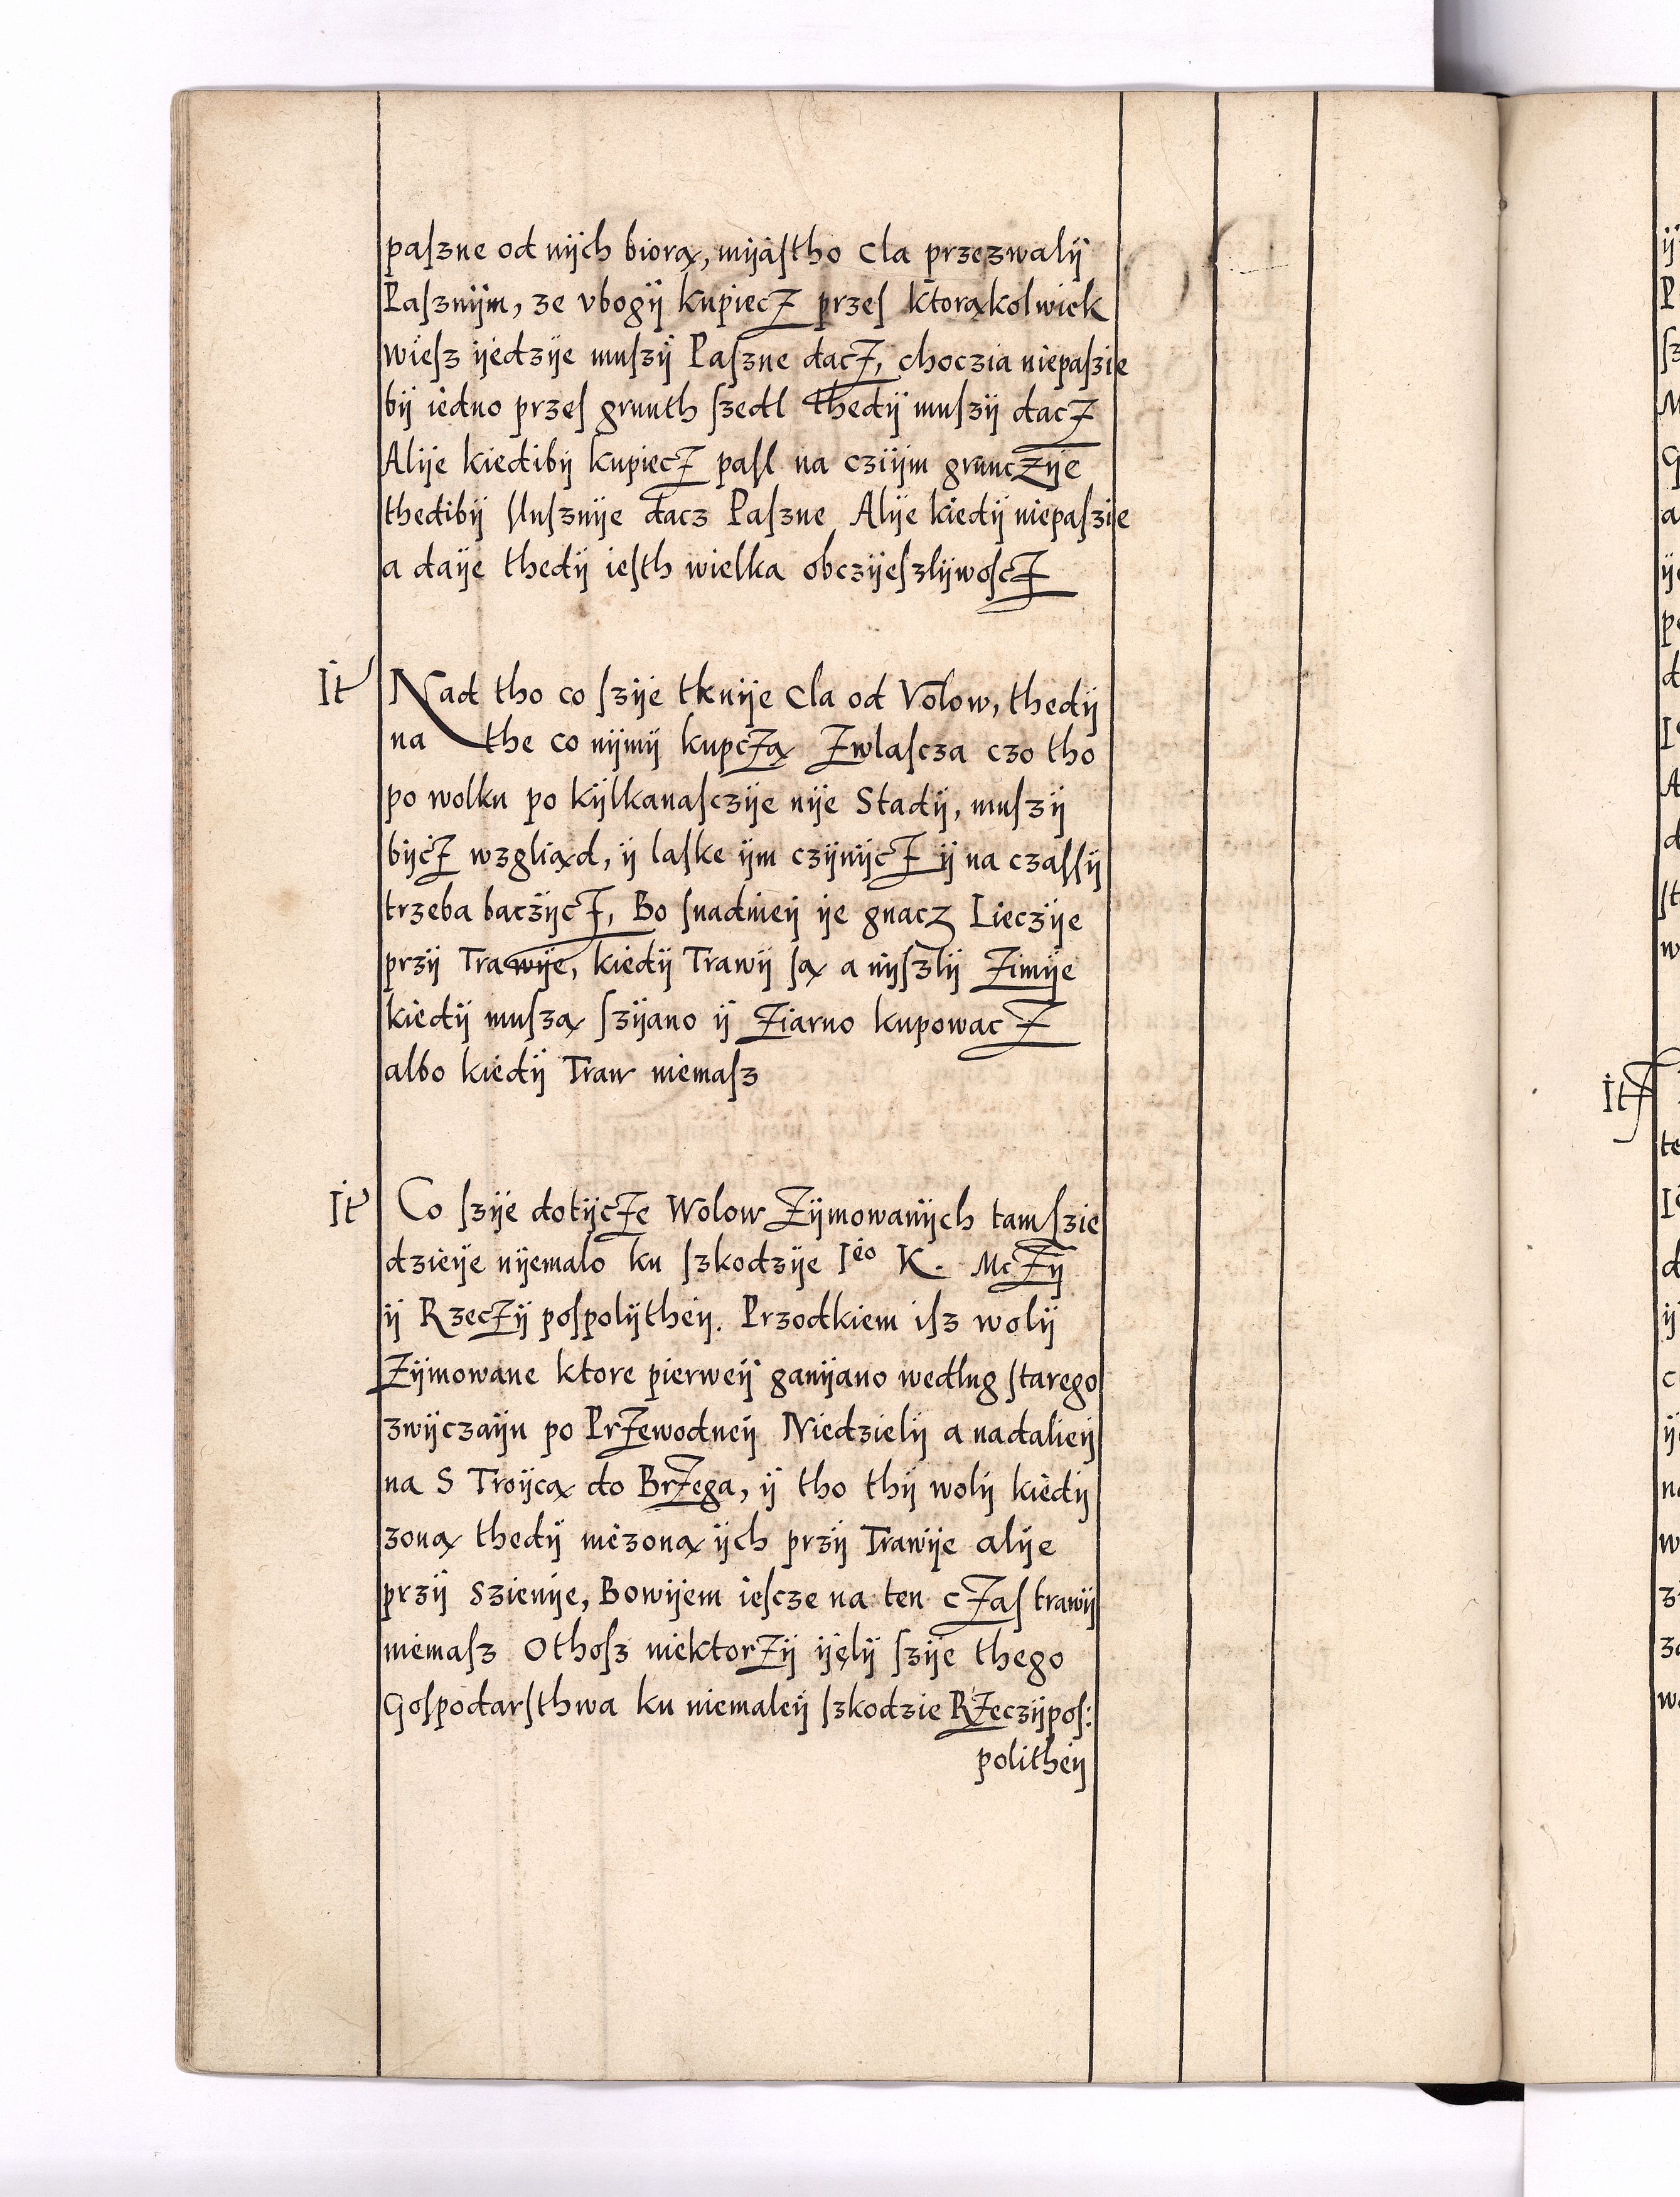 paſzne od nÿch biorą, mÿàſtho Cla przezwalÿ
Paſznÿm, ze vbogÿ kupiecZ przeſ ktorąkolwiek
wieſz ÿedzÿe muſzÿ Paſzne dacZ, choczia niepaſzie
bÿ iedno przeſ grunth ſzedl thedÿ muſzÿ dacZ
Alÿe kiedibÿ kupiecZ paſl na cziÿm gruncZÿe
thedibÿ ſluſznÿe dacz Paſzne Alÿe kiedÿ niepaſzie
a daÿe thedÿ ieſth wielka obczÿeſzlÿwoſcZ
It Nad tho co ſzÿe tknÿe Cla od Volow, thedÿ
na the co nÿmÿ kupcZą Zwlaſcza czo tho
po wolku po kÿlkanaſczÿe nÿe Stadÿ, muſzÿ
bÿcZ wzgliąd, ÿ laſke ÿm czÿnÿcZ ÿ na czaſſÿ
trzeba baczÿcZ, Bo ſnadnieÿ ÿe gnacz Lieczÿe
przÿ Trawÿe, kiedÿ Trawÿ ſą a nÿſzlÿ Zimÿe
kiedÿ muſzą ſzÿano ÿ Ziarno kupowacZ
albo kiedÿ Traw niemaſz
It Co ſzÿe dotÿcZe Wolow Zÿmowanÿch tam ſzie
dzieÿe nÿemalo ku ſzkodzÿe Ieo K. McZÿ
ÿ RzecZÿ poſpolÿtheÿ. Przodkiem iſz wolÿ
Zÿmowane ktore pierweÿ ganÿano wedlug ſtarego
zwÿczaÿu po PrZewodneÿ Niedzielÿ a nadalieÿ
na S Troÿcą do BrZega, ÿ tho thÿ wolÿ kiedÿ
zoną thedÿ niezoną ÿch przÿ Trawÿe alÿe
przÿ Szienÿe, Bowÿem ieſcze na ten cZaſ trawÿ
niemaſz Othoſz niektorZÿ ÿęlÿ ſzÿe thego
Goſpodarſthwa ku niemaleÿ ſzkodzie RZeczÿpoſ:
politheÿ